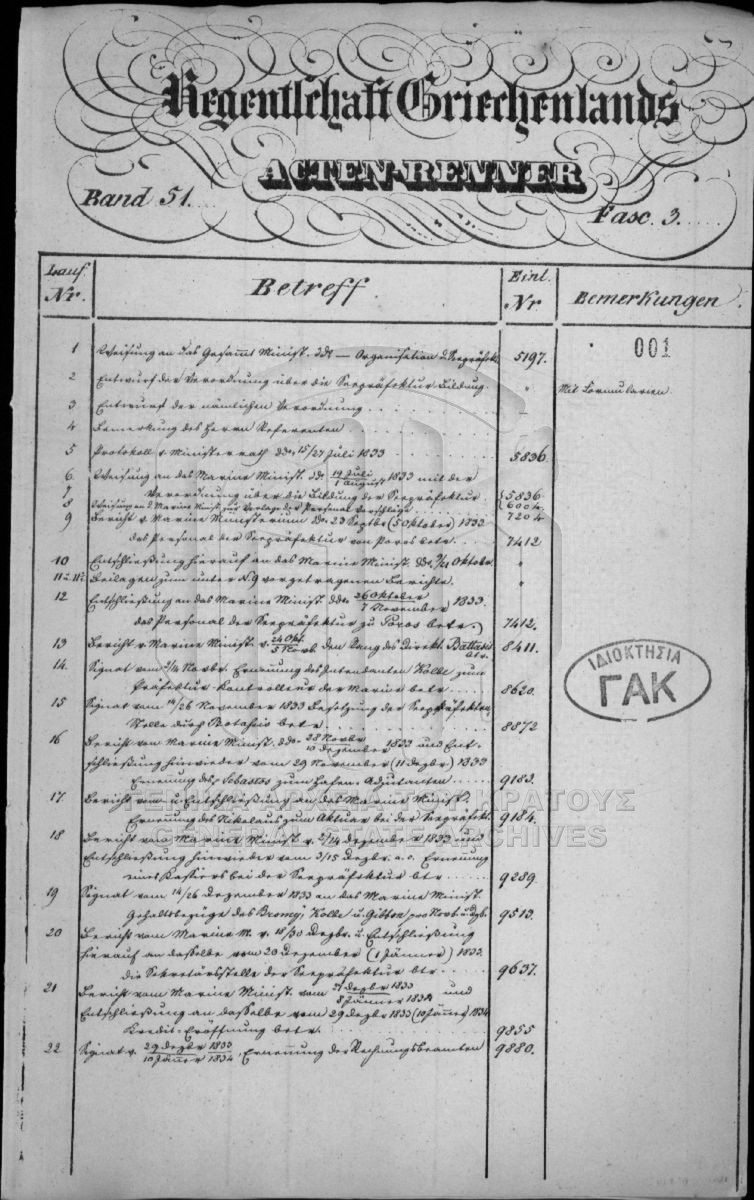 Regentschaft Griechenlands
ACTEN-RENNER
Band 51.
Fasc. 3.
Lauf. Nr.
Betreff
Einl. Nr
Bemerkungen.
001
1 Weisung an das Gesammt Minist. ddo — Organisation d. Seepräfekt. 5197.
2 Entwurf der Verordnung über die Seepräfektur Bildung. " Mit Formularien
3 Entwurf der nämlichen Verordnung. –
4 Bemerkung des Herrn Referenten
5 Protokoll v. Ministerrath ddo 15/27 Juli 1833 5836
6 Weisung an das Marine Minist. ddo 19 Juli / 1 August 1833 mit der
7 Verordnung über die Bildung der Seepräfektur 5836
8 Weisung an d. Marine Minist. zur Vorlage der Personal Vorschläge 6004.
9 Bericht v. Marine Ministerium ddo 23 Septbr (5 Oktober) 1833 7204
das Personal der Seepräfektur von Poros betr. 7412
10 Entschließung hierauf an das Marine Minist. ddo 9/21 Oktobr. "
11 u. 11a. Beilagen zum unter N. 9 vorgetragenen Berichte. "
12 Entschließung an das Marine Minist. ddo 26 Oktober / 7 November 1833.
das Personal der Seepräfektur zu Poros betr. 7412.
13 Bericht v. Marine Minist. v. 24 Okt. / 5 Novb. den Rang des Direkt. betr. 8411.
14. Signat vom 2/14 Novbr. Ernennung des Intendanten Kolbe zum
Präfektur Kontrolleur der Marine betr. 8620.
15 Signat vom 14/26 November 1833 Besetzung der Seepräfektur
Stelle durch Botasis betr. 8872
16 Bericht vom Marine Minist. ddo 28 Novbr / 10 Dezember 1833 und Ent-
schließung hinwieder vom 29 November (11 Dezbr.) 1833
Ernennung des Sebastos zum Hafen-Adjutanten 9183.
17. Bericht vom u. Entschließung an das Marine Minist.
Ernennung des Nikolaus zum Aktuar bei der Seepräfekt. 9184.
18 Bericht vom Marine Minist. v. 2/14 Dezember 1833 und
Entschließung hinwieder vom 3/15 Dezbr. a. c. Ernennung
eines Kassiers bei der Seepräfektur btr. 9289.
19 Signat vom 14/26 Dezember 1833 an das Marine Minist.
Gehaltsbezüge des Kolbe u. Gibson pro Novb. u. Dzb. 9513.
20 Bericht vom Marine M. v. 18/30 Dezbr. u. Entschließung
hierauf an dasselbe vom 20 Dezember (1 Jänner) 1833.
die Sekretärsstelle der Seepräfektur btr. 9637.
21 Bericht vom Marine Minist. vom 27 Dezbr 1833 / 8 Jänner 1834 und
Entschließung an dasselbe vom 29 Dezbr 1833 (10 Jänner) 1834
Kredit-Eröffnung betr. 9855
22 Signat v. 29 Dezbr 1833 / 10 Jänner 1834. Ernennung der Rechnungsbeamten 9880.
ΙΔΙΟΚΤΗΣΙΑ
ΓΑΚ
ΓΕΝΙΚΑ ΑΡΧΕΙΑ ΤΟΥ ΚΡΑΤΟΥΣ
GENERAL STATE ARCHIVES